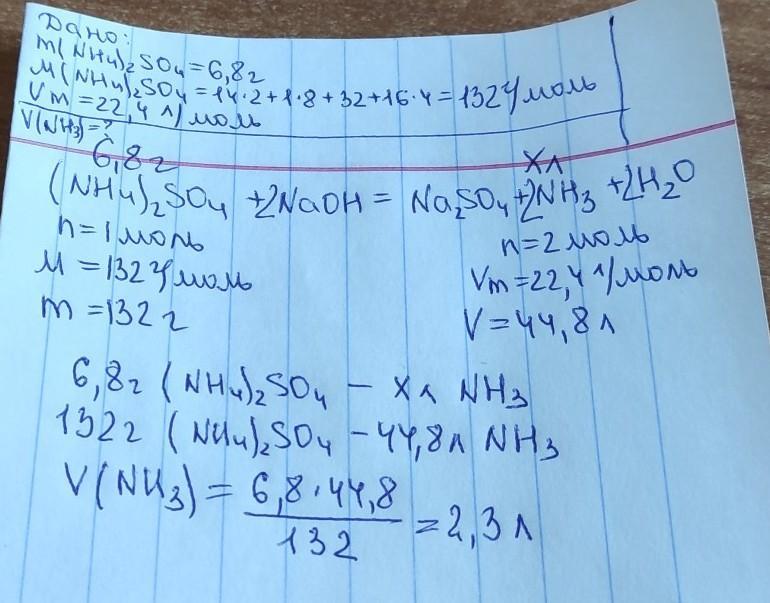 Дано:
m(NH4)2SO4=6,8г
M(NH4)2SO4=14·2+1·8+32+16·4=132г/моль
Vm=22,4 л/моль
V(NH3)=?
6,8г Xл
(NH4)2SO4 +2NaOH= Na2SO4+2NH3 +2H2O
n=1моль n=2моль
M=132г/моль Vm=22,4 л/моль
m=132г V=44,8л
6,8г (NH4)2SO4 – Xл NH3
132г (NH4)2SO4 –44,8л NH3
V(NH3)= 6,8·44,8 =2,3л
132